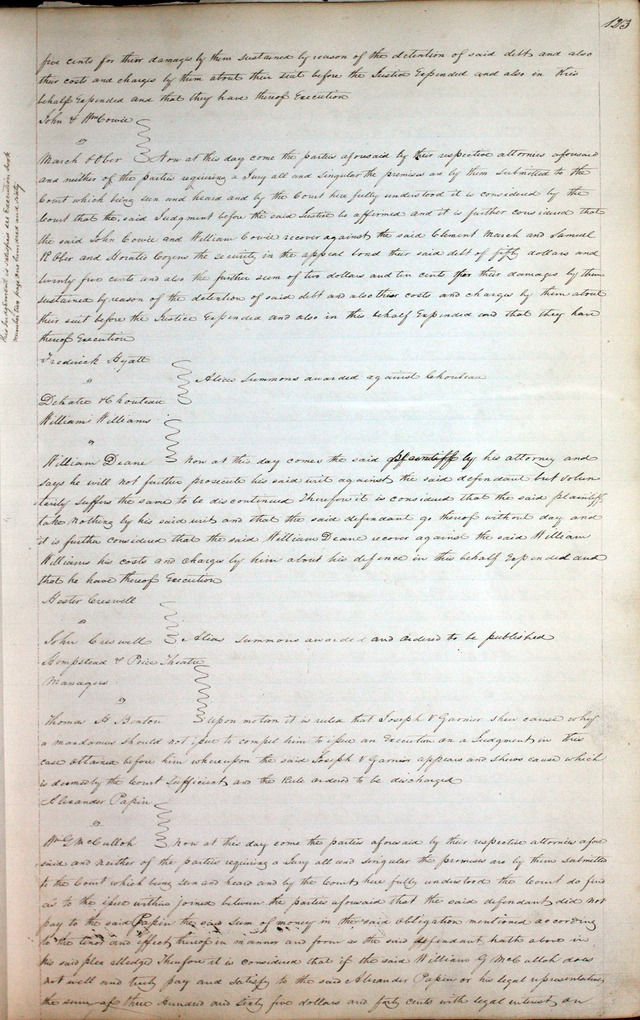 123
five cents for their damages by them sustained by reason of the detention of said debt and also
their costs and charges by them about their suit before the Justice Expended and also in this
behalf Expended and that they have thereof Execution
John & Wm Cowie
vs
March & Ober Now at this day come the parties aforesaid by their respective attornies aforesaid
and neither of the parties requiring a Jury all and singular the premises are by them submitted to the
Court which being seen and heard and by the Court here fully understood it is considered by the
Court that the said Judgment before the said Justice be affirmed and it is further considered that
the said John Cowie and William Cowie recover against the said Clement March and Samuel
R Ober and Horatio Cozens the security in the appeal bond their said debt of fifty dollars and
twenty five cents and also the further sum of two dollars and ten cents for their damages by them
sustained by reason of the detention of said debt and also their costs and charges by them about
their suit before the Justice Expended and also in this behalf Expended and that they have
thereof Execution
Frederick Hyatt
vs
Alias Summons awarded against Chouteau
& Chouteau
William Williams
vs
William Deane Now at this day comes the said plaintiff by his attorney and
says he will not further prosecute his said writ against the said defendant but volun
tarily suffers the same to be discontinued Therefore it is considered that the said plaintiff
take nothing by his said writ and that the said defendant go thereof without day and
it is further considered that the said William Deane recover against the said William
Williams his costs and charges by him about his defence in this behalf Expended and
that he have thereof Execution
Hester Creswell
vs
John Creswell Alias Summons awarded and ordered to be published
Hempstead & Price Theatre
Managers
vs
Thomas H Benton Upon motion it is ruled that Joseph V Garnier shew cause why
a mandamus should not issue to compel him to issue an Execution on a Judgment in this
case obtained before him whereupon the said Joseph V Garnier appears and shews cause which
is deemed by the Court Sufficient and the Rule ordered to be discharged
Alexander Papin
vs
Wm G McCulloh Now at this day come the parties aforesaid by their respective attornies afore
said and neither of the parties requiring a Jury all and singular the premises are by them submitted
to the Court which being seen and heard and by the Court here fully understood the Court do find
as to the issue within joined between the parties aforesaid that the said defendant did not
pay to the said Papin the said sum of money in the said obligation mentioned according
to the tenor and effect thereof in manner and form as the said defendant hath above in
his said plea alledged Therefore it is considered that if the said William G McCulloh does
not well and truly pay and satisfy to the said Alexander Papin or his legal representatives
the sum of three Hundred and Sixty five dollars and forty cents with legal interest on